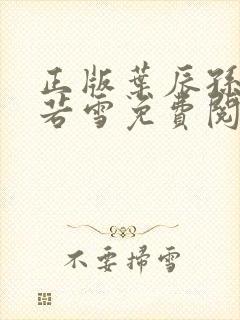 正版葉辰孫
若雪免費閱
不要掃雪